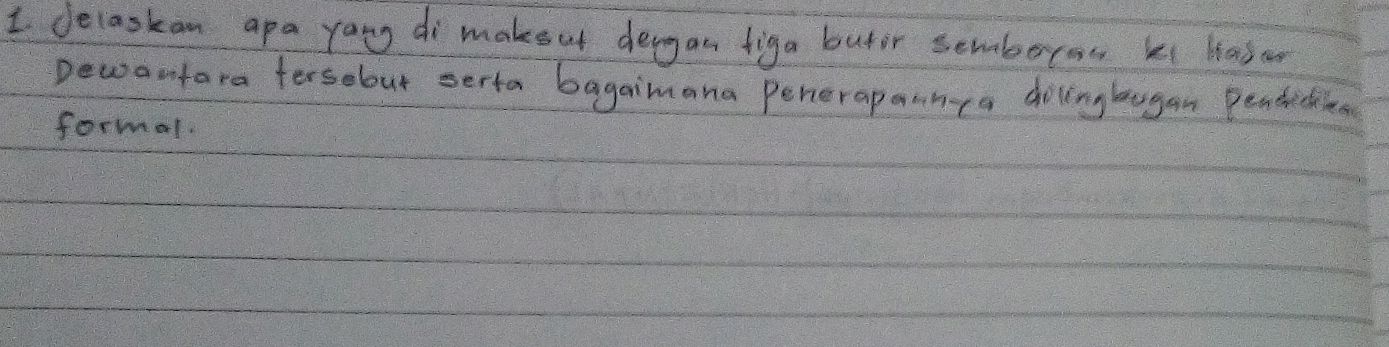 1. Jelaskan apa yang di maksut dengan tiga butir semboyan ki Hajar
Dewantara tersebut serta bagaimana Penerapannya dilingkugan Pendidikan
formal.